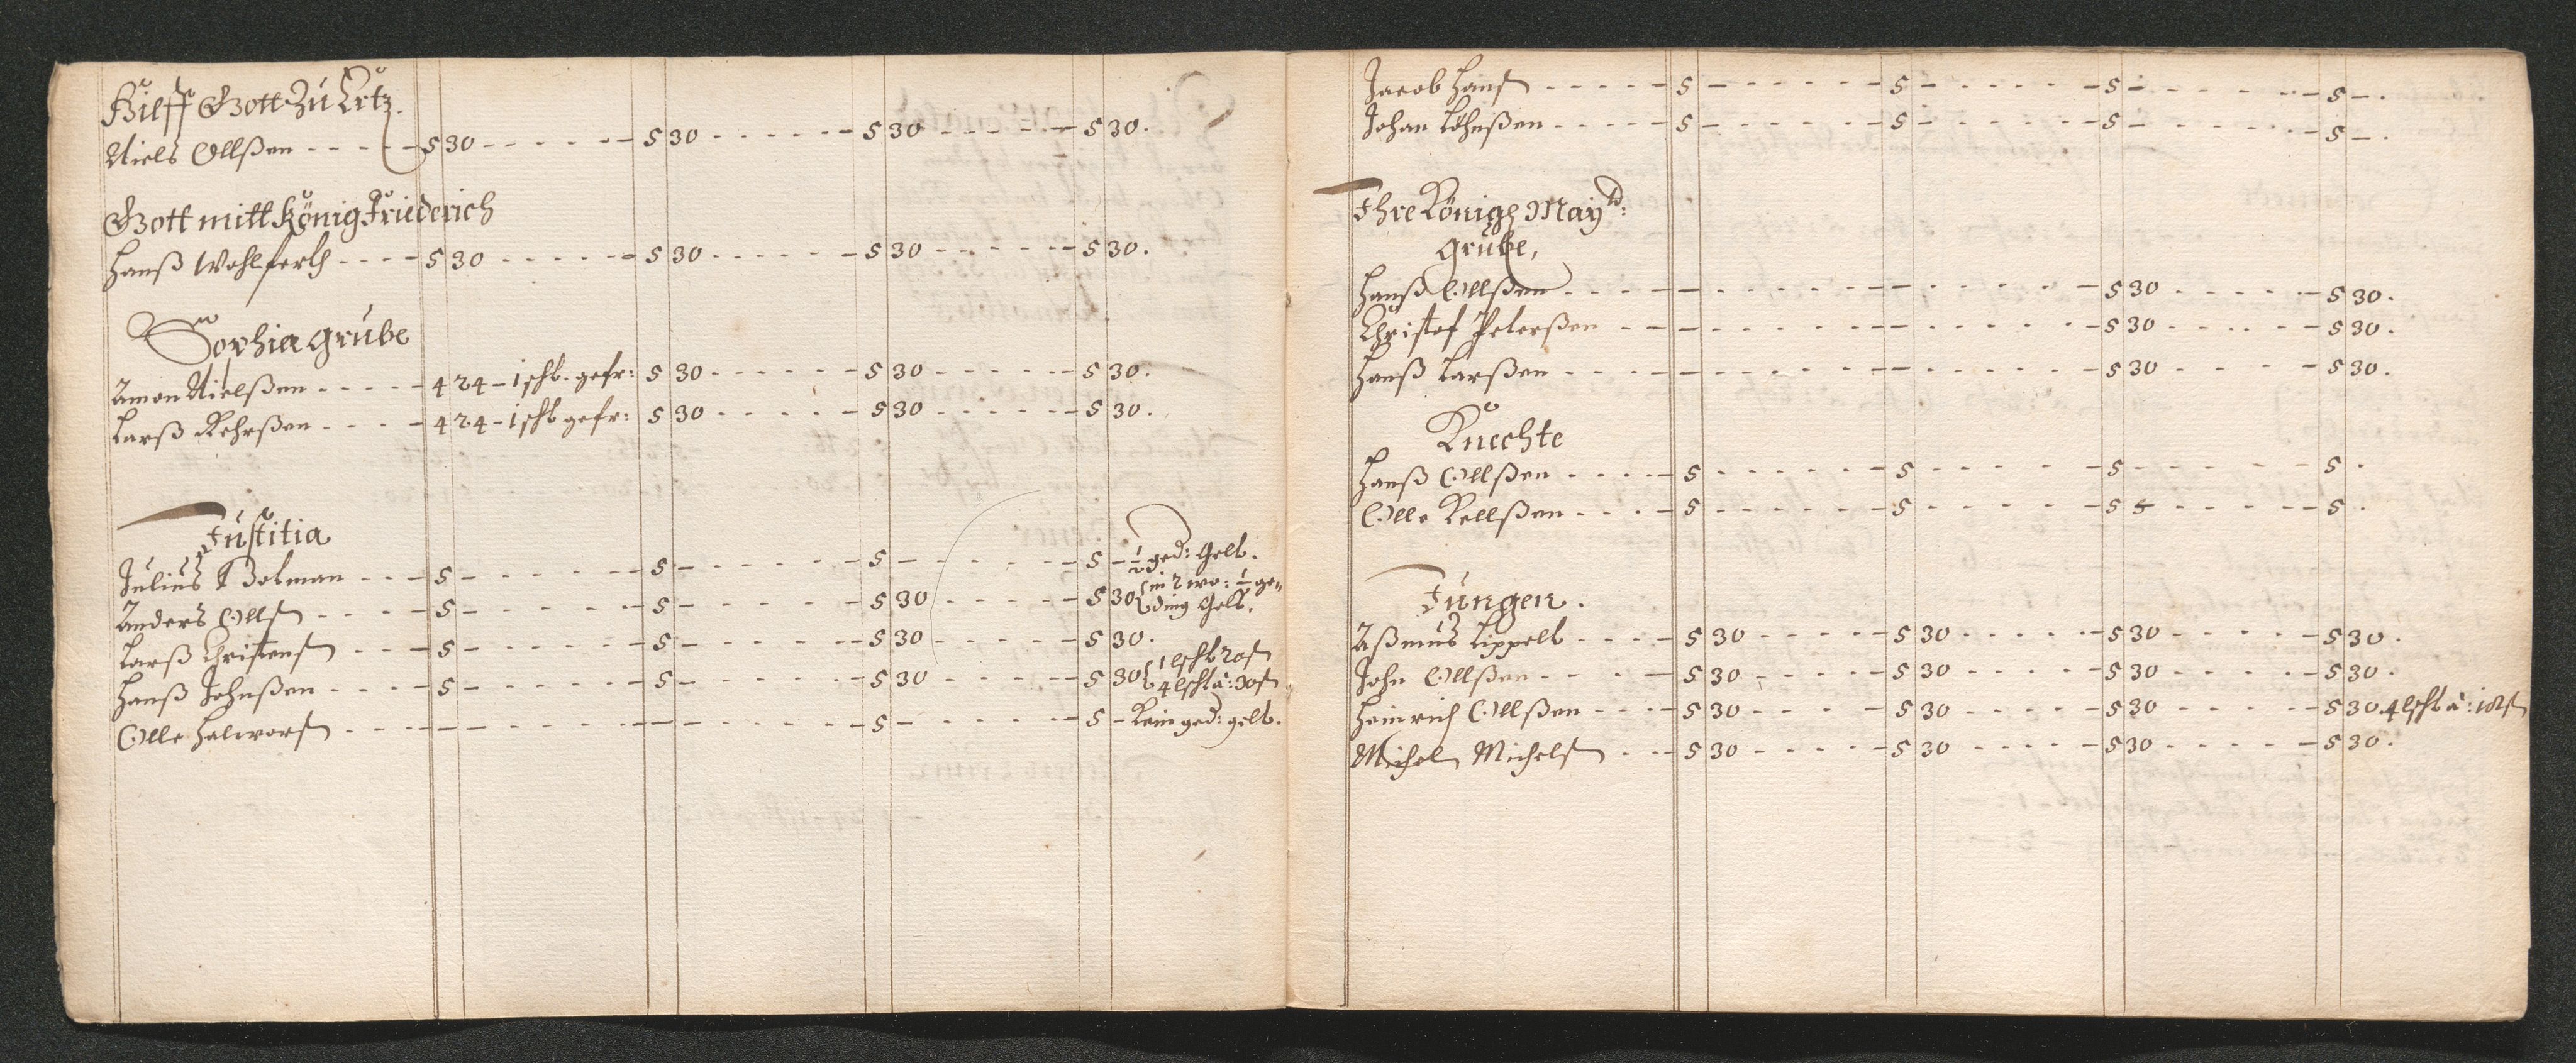 Hilff Gott Zu Ertz.
Niels Ollßen - - - - - 5 30 - - - - - - 5 30 - - - - - - 5 30 - - - - - - 5 30.
Gott mitt König Friederich
Hanß Wohlferth - - - - 5 30 - - - - - - 5 30 - - - - - - 5 30 - - - - - - 5 30.
Sophia Grube
Amon Nielßen - - - - - 4 24 - 1 schb. gefr: 5 30 - - - - - - 5 30 - - - - - - 5 30.
Larß Kehrßen - - - - 4 24 - 1 schb gefr: 5 30 - - - - - - 5 30 - - - - - - 5 30.
Justitia
Julius Bolman - - - 5 - - - - - - 5 - - - - - - 5 - - - - - - 5 - ½ ged: Gelt.
Anders Ollß - - - - 5 - - - - - - 5 - - - - - - 5 30 - - - - - - 5 30 { in 2 wo: ½ ge„
ding Gelt.
Larß Christenß - - - 5 - - - - - - 5 - - - - - - 5 30 - - - - - - 5 30.
Hanß Johnßen - - - - 5 - - - - - - 5 - - - - - - 5 30 - - - - - - 5 30 { 1 lschb 20ß
4 lschb à: 30ß
Olle Halworß - - - - - - - - - - - - - - - - 5 - - - - - - 5 - Kein ged: gelt.
Jacob Hanß - - - - - 5 - - - - - - 5 - - - - - - 5 - - - - - - 5 - .
Johan Löhnßen - - - - 5 - - - - - - 5 - - - - - - 5 - - - - - - 5 - .
Ihre Königl May tt:
Grube,
Hanß Ollßen - - - - - - - - - - - - - - - - 5 30 - - - - - - 5 30.
Christof Peterßen - - - - - - - - - - - - - - 5 30 - - - - - - 5 30.
Hanß Larßen - - - - - - - - - - - - - - - - 5 30 - - - - - 5 30.
Knechte
Hanß Ollßen - - - - - 5 - - - - - - 5 - - - - - 5 - - - - - - 5 .
Olle Kellßen - - - - 5 - - - - - - 5 - - - - - 5 - - - - - - 5 .
Jungen.
Aßmus Lippelt - - - - 5 30 - - - - - 5 30 - - - - - 5 30 - - - - - 5 30.
John Ollßen - - - - - 5 30 - - - - - 5 30 - - - - - 5 30 - - - - - 5 30.
Heinrich Ollßen - - - - 5 30 - - - - - 5 30 - - - - - 5 30 - - - - - 5 30 4 lschb à: 18ß
Michel Michelß - - - 5 30 - - - - - 5 30 - - - - - 5 30 - - - - - 5 30.